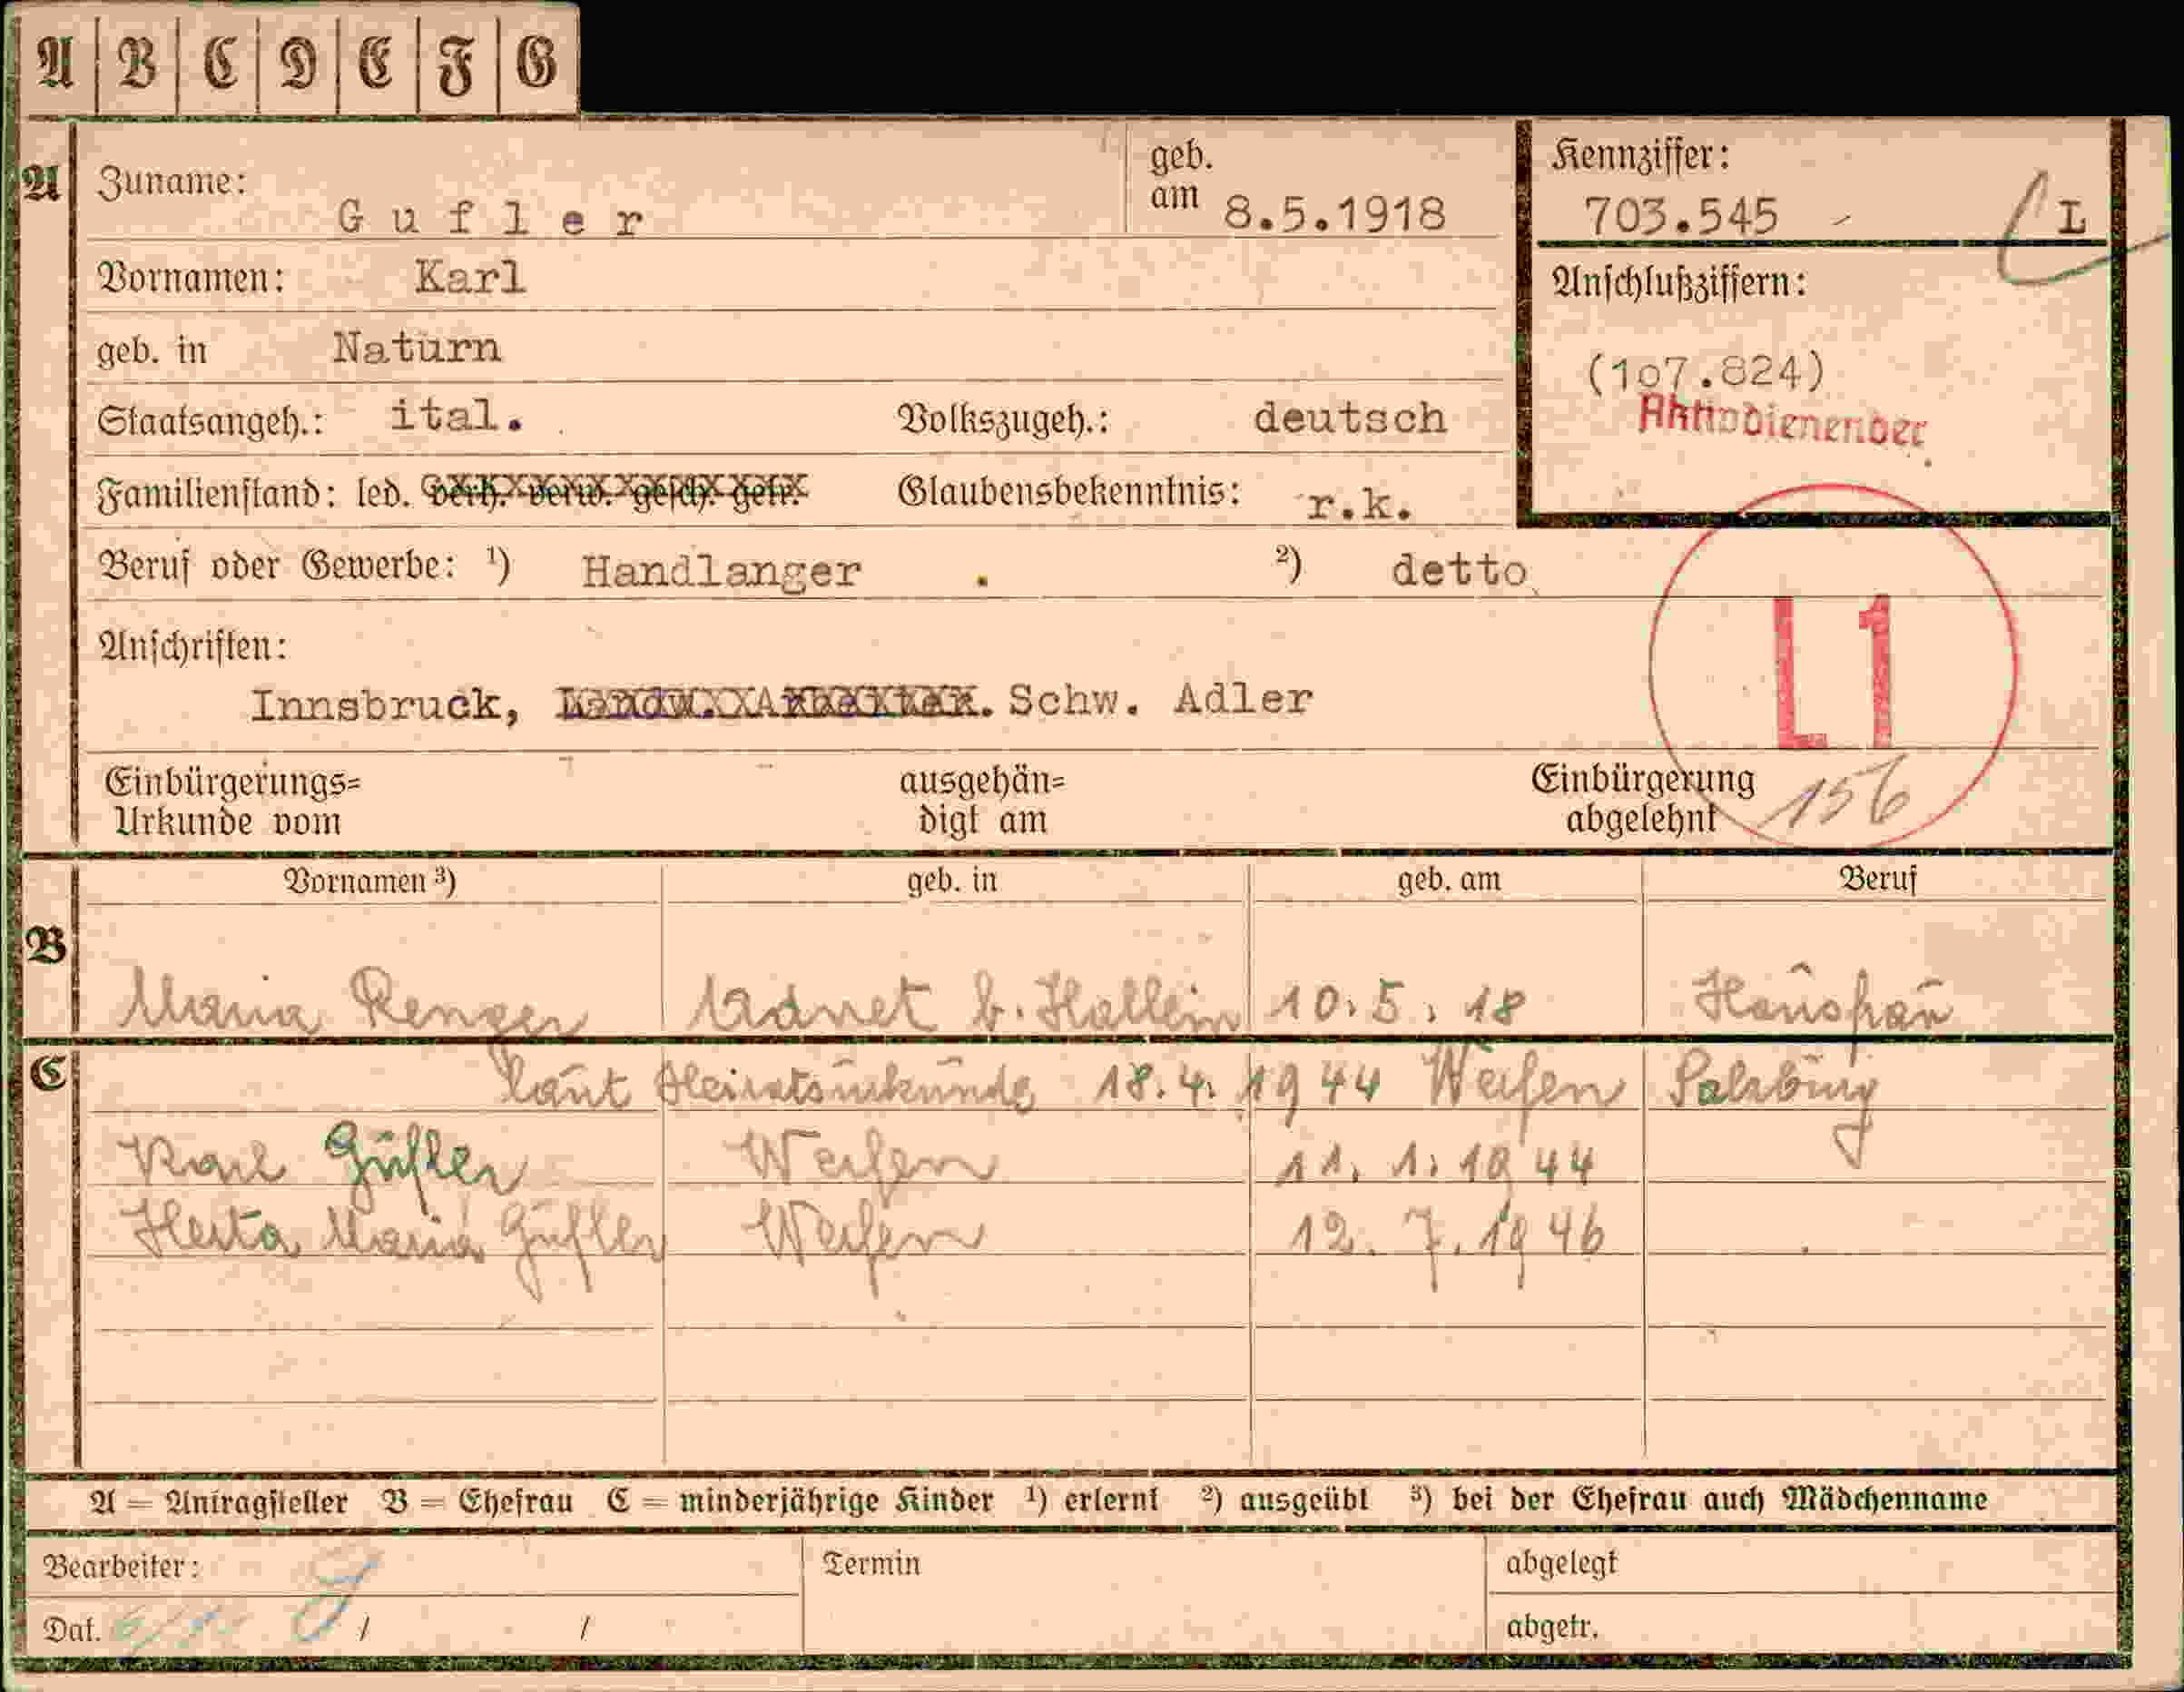 A B C D E F G
A
Zuname: Gufler
geb. am 8.5.1918
Kennziffer:
703.545 L
Vornamen: Karl
Anschlußziffern:
geb. in Naturn
(107.824)
Aktivdienender
Staatsangeh.: ital. Volkszugeh.: deutsch
Familienstand: led. verh. verw. gesch. getr. Glaubensbekenntnis: r.k.
Beruf oder Gewerbe: ¹) Handlanger . ²) detto
L1
Anschriften:
Innsbruck, Landw. Arbeiter. Schw. Adler
Einbürgerungs= Urkunde vom
ausgehän= digt am
Einbürgerung abgelehnt 156
B
Vornamen ³) geb. in geb. am Beruf
Maria Renger Adnet b. Hallein 10.5.18 Hausfrau
C
laut Heiratsurkunde 18.4.1944 Werfen Salzburg
Karl Gufler Werfen 11.1.1944
Herta Maria Gufler Werfen 12.7.1946
A = Antragsteller B = Ehefrau C = minderjährige Kinder ¹) erlernt ²) ausgeübt ³) bei der Ehefrau auch Mädchenname
Bearbeiter: Termin abgelegt
Dat. / / abgetr.